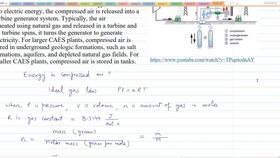 to electric energy, the compressed air is released into a
turbine generator system. Typically, the air
heated using natural gas and released in a turbine and
turbine spins, it turns the generator to generate
electricity. For larger CAES plants, compressed air is
stored in underground geologic formations, such as salt
formations, aquifers, and depleted natural gas fields. For
smaller CAES plants, compressed air is stored in tanks.
Energy in compressed air
Ideal gas law PV = nRT
where P = pressure, V = volume n = amount of gas in moles
R is gas constant = 8.3144 J
mol K
n = mass (grams) = m
Molar mass (grams per mole) M